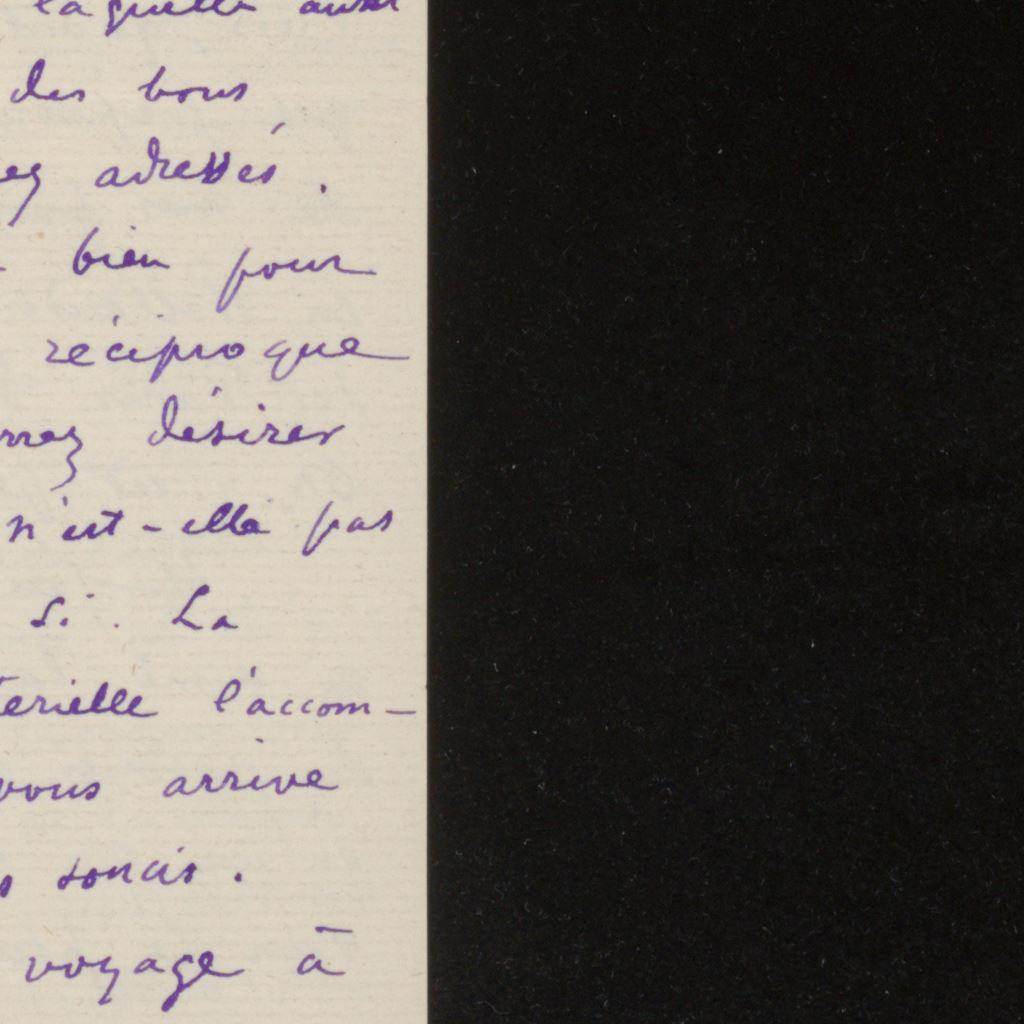 laquelle aussi
des bons
ez adressés.
bien pour
réciproque
rrez désirer
n'est-elle pas
si. La
térielle l'accom-
vous arrive
s soucis.
voyage à